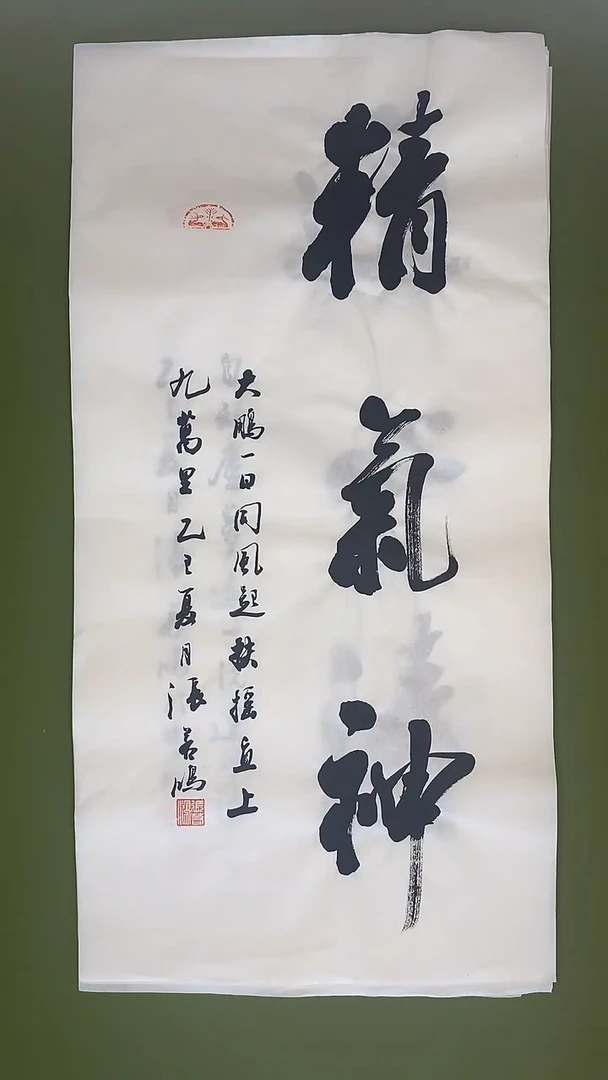 精氣神
大鵬一日同風起扶摇直上
九萬里乙巳夏月張若鵬